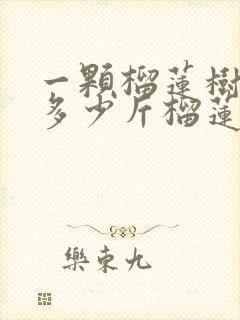 一顆榴蓮樹
多少斤榴蓮
樂東九